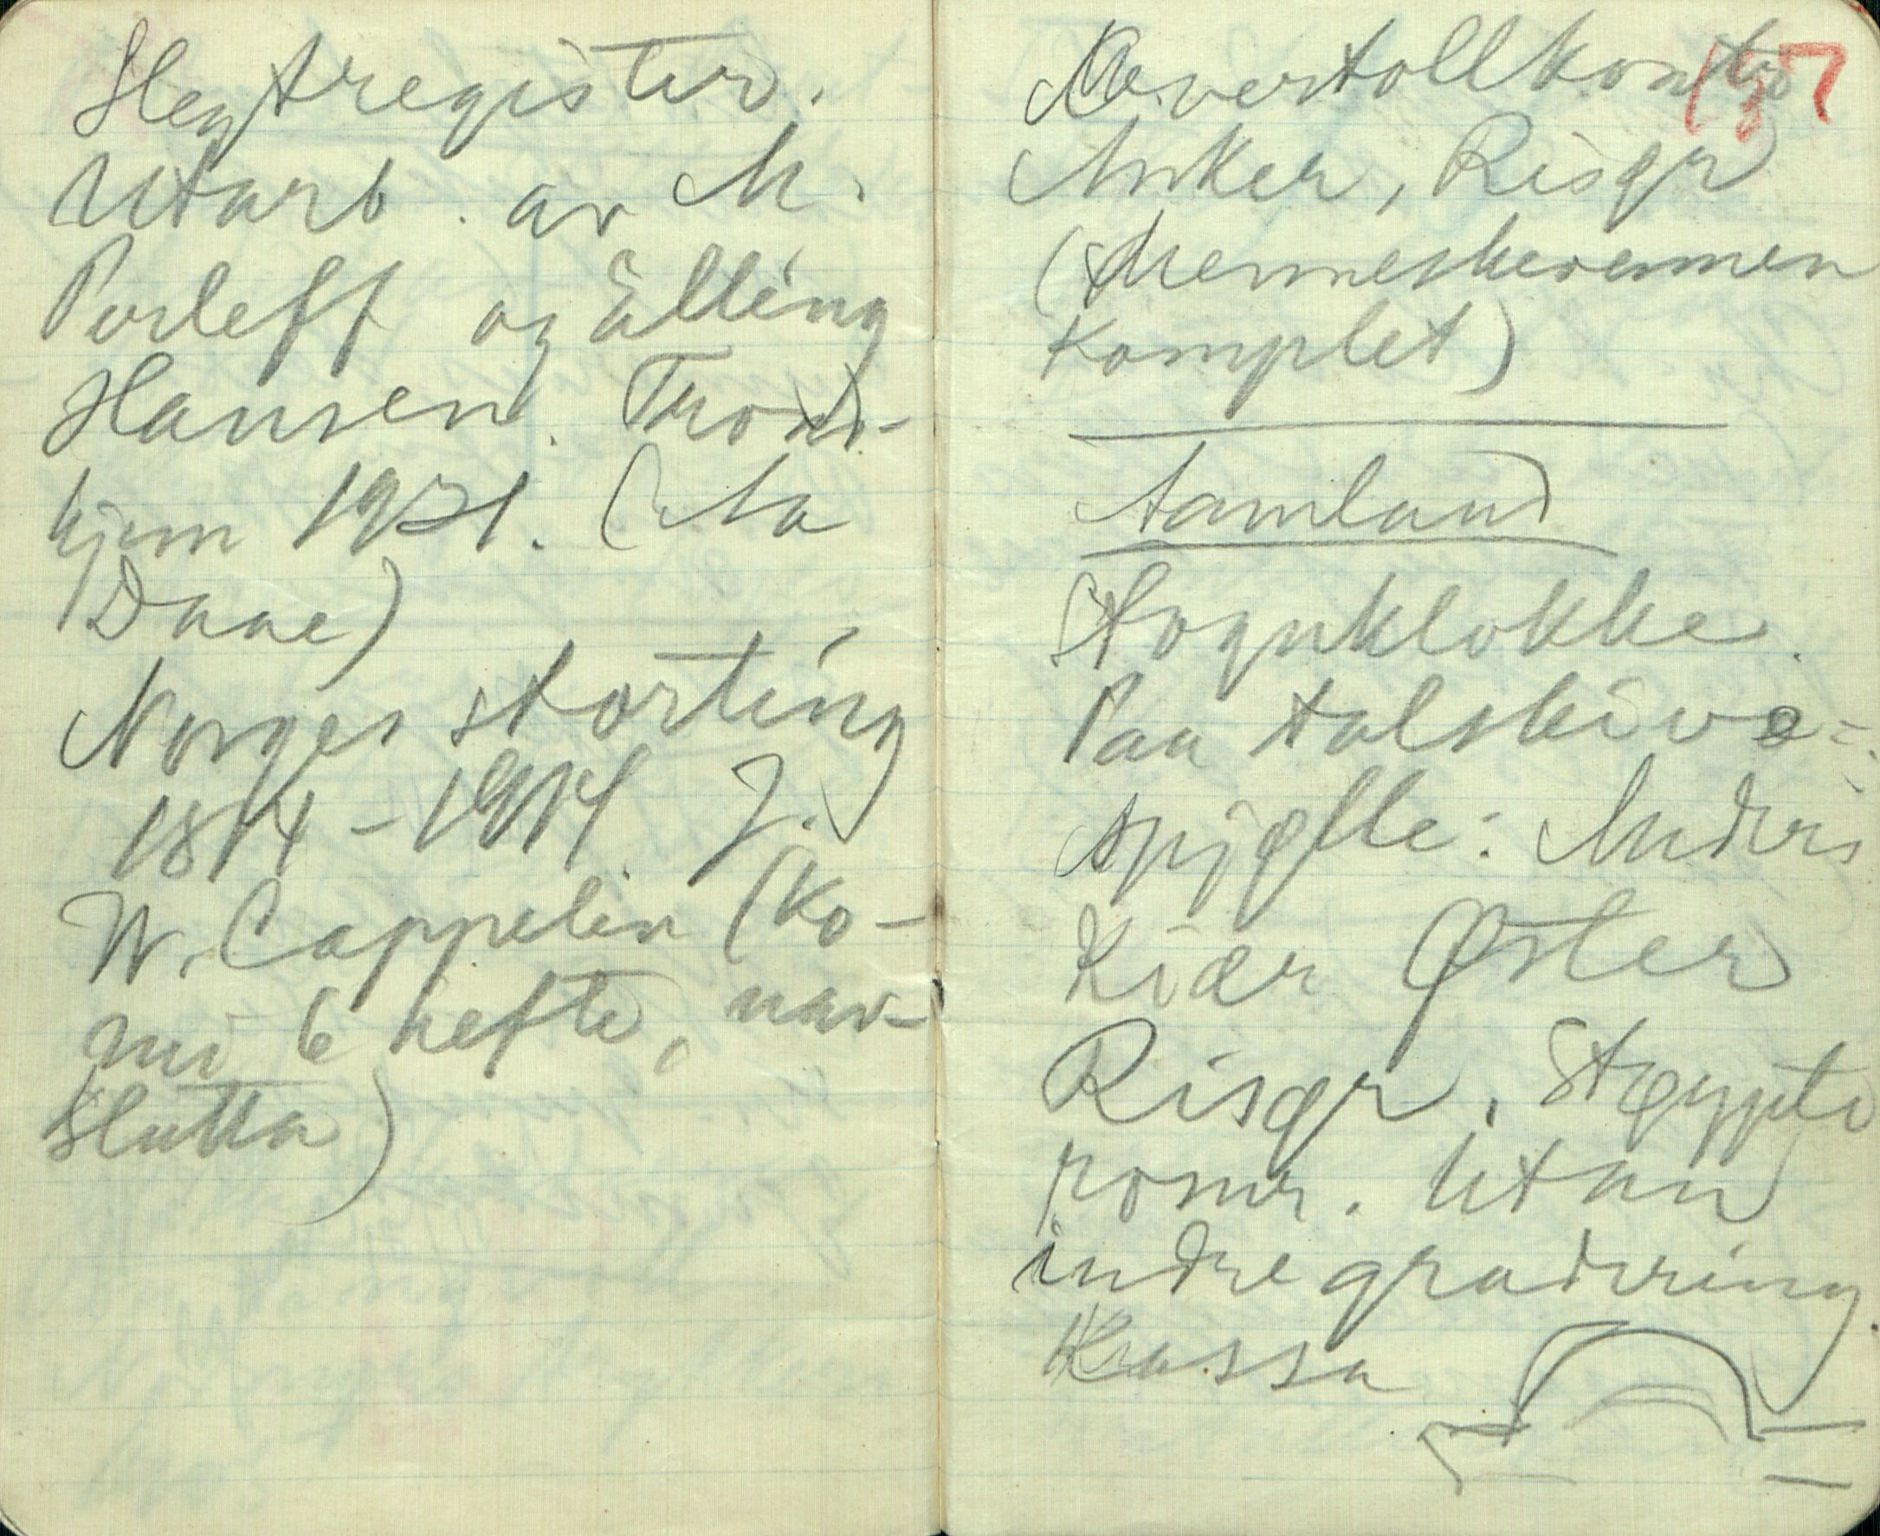 Slegtregister.
Utarb. av M.
Porleff og Ælling
Hansen. Trond-
hjem 1921. (Aa
Daae)
Norges storting
1814-1914 J.
W. Cappelen (ko-
me 6 hefte, uav-
slutta)
Overtollkontrø
Anker, Risør
(Menneskevennen
komplet)
Aamland
Stoguklokke.
Paa talskive-
spjælle: Anders
Kiær Øster
Risør.
romr. Utan
indre gradering.
Kassa
157